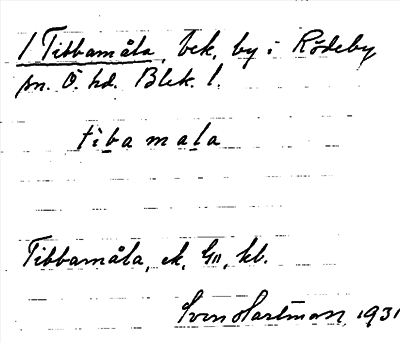 1 Tibbamåla, bek, by i Rödeby
sn. Ö. hd. Blek. l.
tibamala
Tibbamåla, ek, Gn, kb.
Sven Hartman 1931